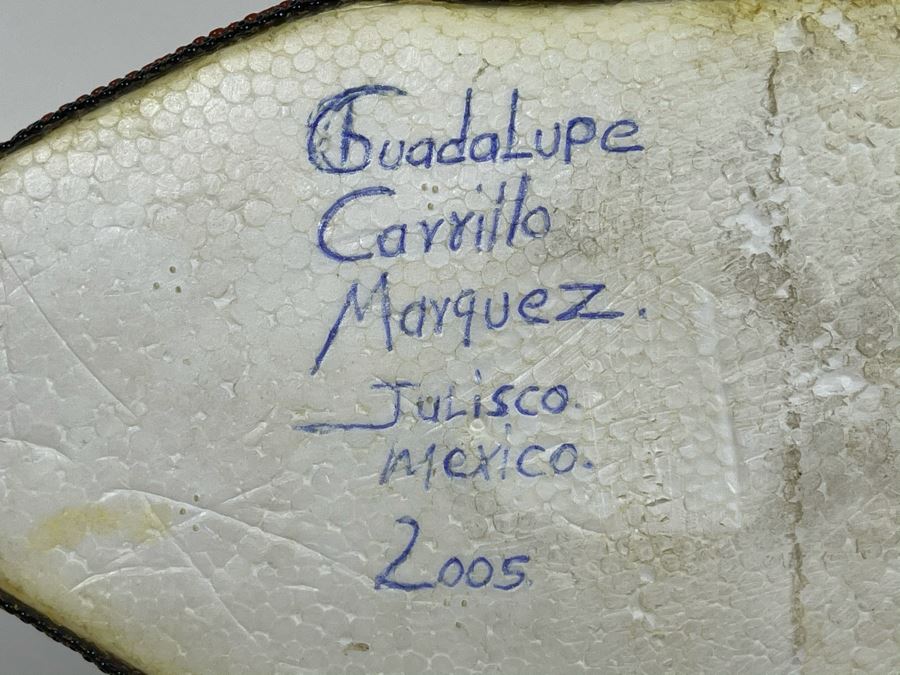 GuadaLupe
Carrillo
Marquez.
Julisco.
Mexico.
2005